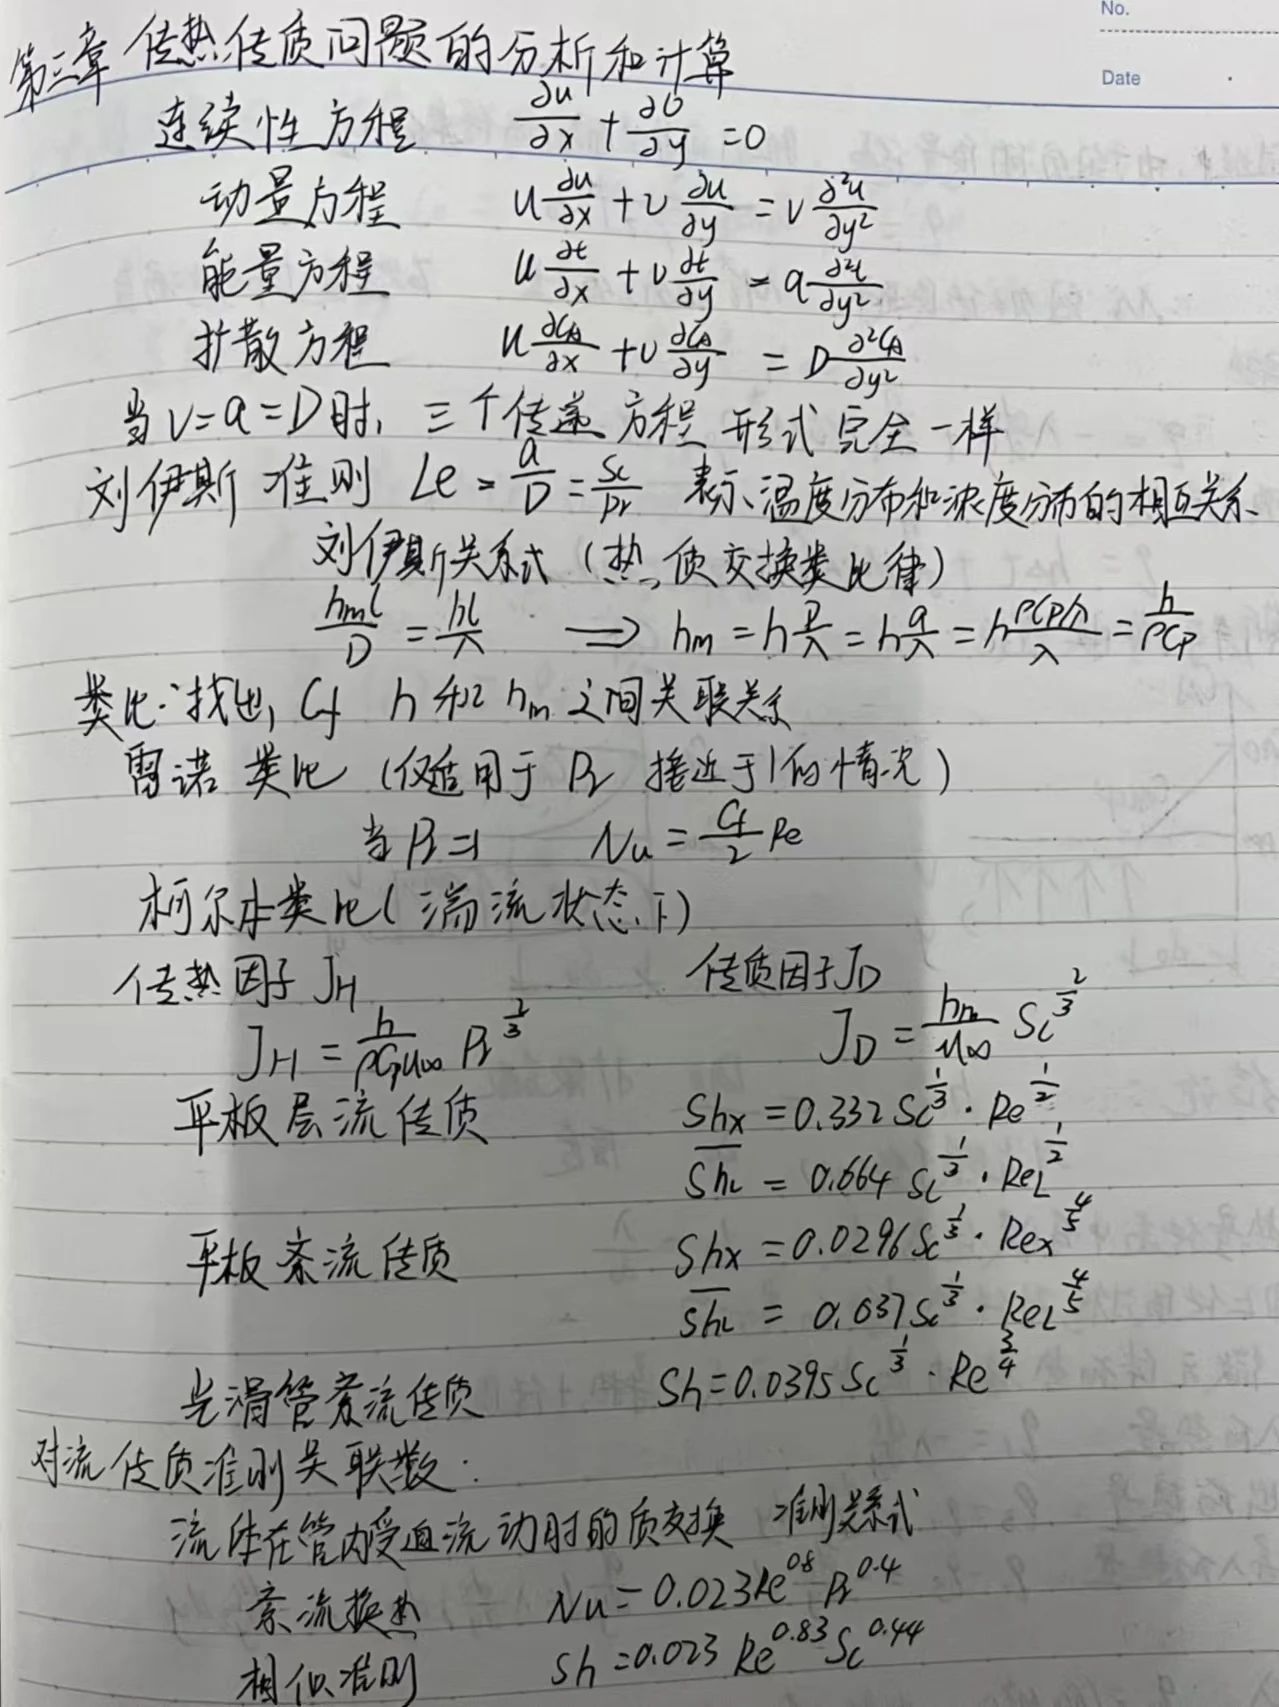 No.
Date
第三章 传热传质问题的分析和计算
连续性方程 ∂u/∂x + ∂υ/∂y = 0
动量方程 u ∂u/∂x + υ ∂u/∂y = ν ∂²u/∂y²
能量方程 u ∂t/∂x + υ ∂t/∂y = a ∂²t/∂y²
扩散方程 u ∂C_A/∂x + υ ∂C_A/∂y = D ∂²C_A/∂y²
当ν=a=D时, 三个传递方程 形式完全一样
刘伊斯准则 Le = a/D = Sc/Pr 表示温度分布和浓度分布的相互关系
刘伊斯关系式 (热、质交换类比律)
h_m l/D = hl/λ ⟹ h_m = h D/λ = h a/λ = h = h/ρCp
类比:找出, Cf h 和 h_m 之间关联关系
雷诺类比 (仅适用于 Pr 接近于1的情况)
当 Pr=1 Nu = Cf/2 Re
柯尔本类比(湍流状态下)
传热因子 J_H 传质因子 J_D
J_H = h/ρCpu∞ Pr^2/3 J_D = h_m/u∞ Sc^2/3
平板层流传质 Shx = 0.332 Sc^1/3 · Re^1/2
S̅h̅_L = 0.664 Sc^1/3 · Re_L^1/2
平板紊流传质 Shx = 0.0296 Sc^1/3 · Rex^4/5
S̅h̅_L = 0.037 Sc^1/3 · Re_L^4/5
光滑管紊流传质 Sh = 0.0395 Sc^1/3 · Re^3/4
对流传质准则关联数:
流体在管内受迫流动时的质交换 准则关系式
紊流换热 Nu = 0.023 Re^0.8 Pr^0.4
相似准则 Sh = 0.023 Re^0.83 Sc^0.44